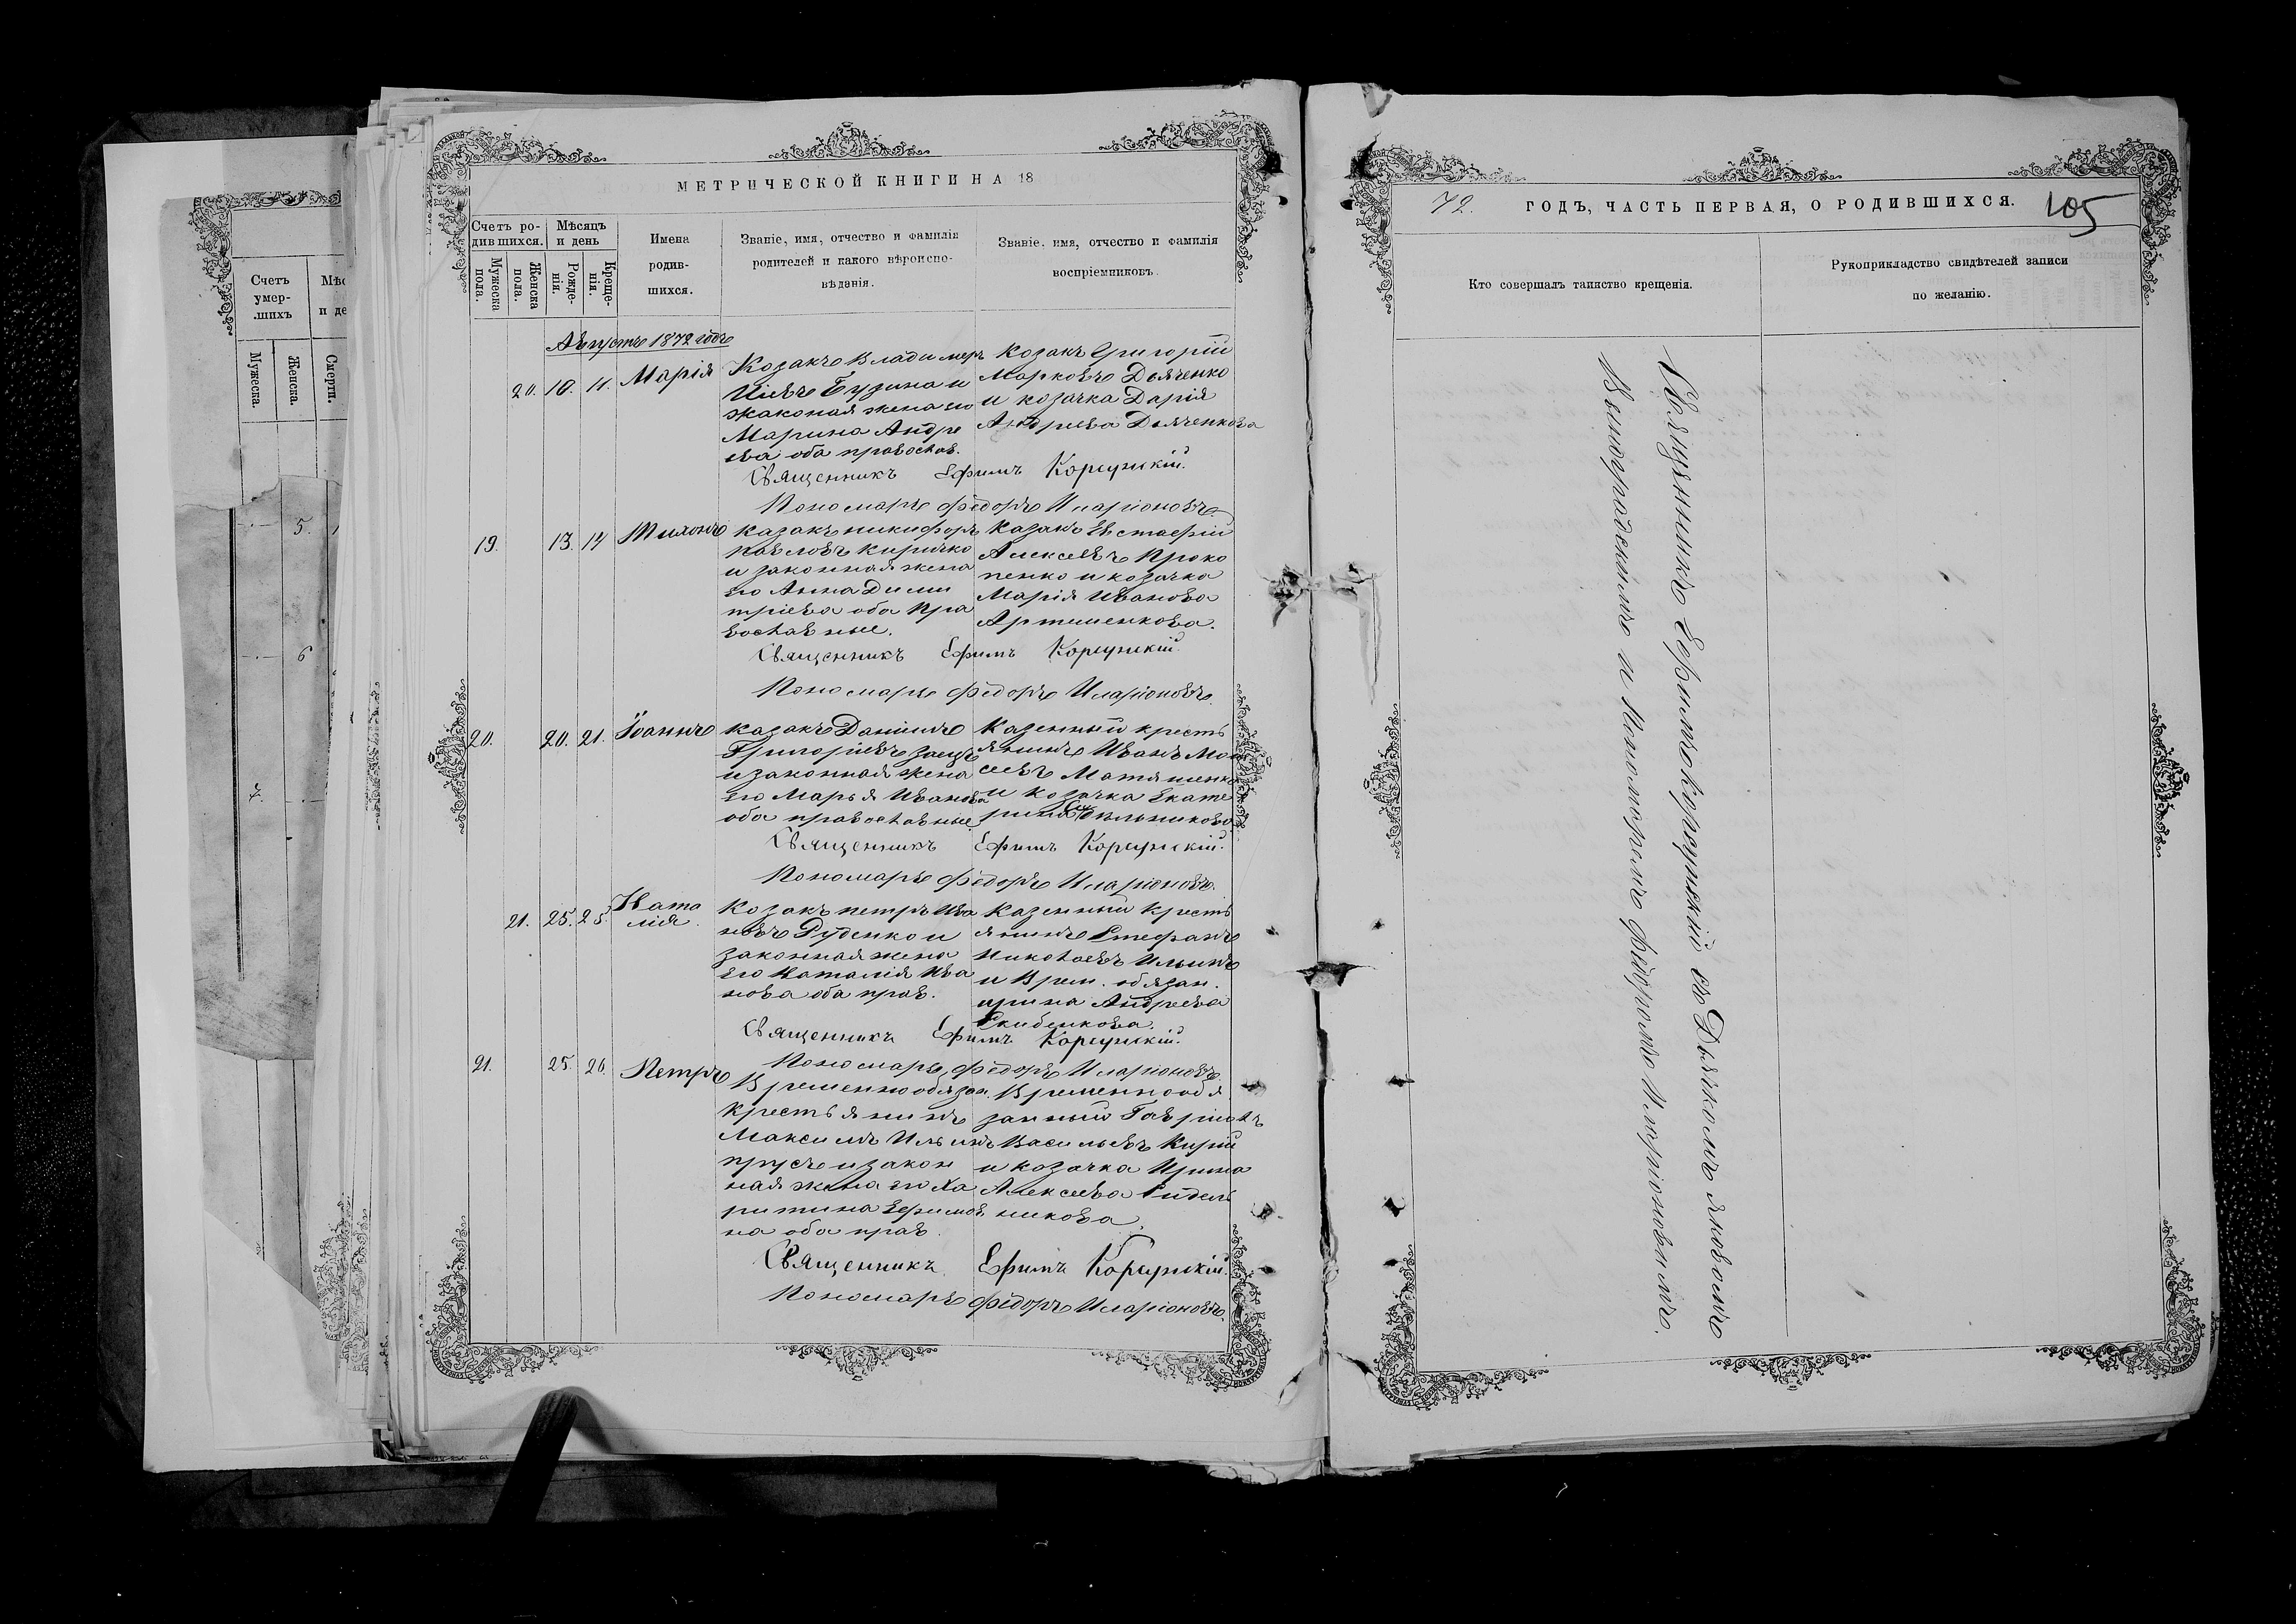 МЕТРИЧЕСКОЙ КНИГИ НА 18
Счетъ ро-
дившихся.
Мѣсяцъ
и день
Мужеска
пола.
Женска
пола.
Рожде-
нія.
Креще-
нія.
Имена
родив-
шихся.
Званіе, имя, отчество и фамилія
родителей и какого вѣроиспо-
вѣданія.
Званіе, имя, отчество и фамилія
воспріемниковъ.
Августъ 1872 годъ
20. 10. 11. Марія
Козакъ Владимеръ
Бузина и
законая жена его
Марина Андре
ева оба православ.
Козакъ Григорій
Марковъ Дьяченко
и козачка Дарія
Андреева Дьяченкова
Священникъ Ефимъ Корсунскій.
Пономарь Фёдоръ Иларіоновъ.
19. 13. 14 Тихонъ
казакъ никифоръ
павловъ Киричко
и законная жена
его Анна Дими
тріева оба пра
вославные.
Казакъ Евстафій
Алексеевъ Проко
пенко и козачка
Марія Иванова
Артеменкова.
Священникъ Ефимъ Корсунскій.
Пономарь Фёдоръ Иларіоновъ.
20. 20. 21. Іоаннъ
казакъ Даніилъ
Григоріевъ Заецъ
и законная жена
его Марья Иванова
оба православные
Казенный кресть
янинъ Иванъ Мои
сеевъ Матяшенко
и козачка Екате
рина
Священникъ Ефимъ Корсунскій.
Пономарь Фёдоръ Иларіоновъ.
21. 25. 25. Ната
лія.
Козакъ петръ Ива
новъ Руденко и
законная жена
его Наталія Ива
нова оба прав.
Казенный кресть
янинъ Стефанъ
Николаевъ Ильинъ
и Врем. обязан.
ирина Андреева
Скибенкова.
Священникъ Ефимъ Корсунскій.
Пономарь Фёдоръ Иларіоновъ.
21. 25. 26. Петръ
Временно обязан.
крестьянинъ
Максимъ Ильинъ
прусъ и закон
ная жена его Ха
ритина Ефимов
на оба прав.
Временно обя
занный Гавріилъ
Васильевъ Кирій
и козачка Ирина
Алексеева Сидель
никова.
Священникъ Ефимъ Корсунскій.
Пономарь Фёдоръ Иларіоновъ.
72. ГОДЪ, ЧАСТЬ ПЕРВАЯ, О РОДИВШИХСЯ. 105
Кто совершалъ таинство крещенія.
Рукоприкладство свидѣтелей записи
по желанію.
Священникъ Ефимъ Корсунскій съ Дьячкомъ яковомъ
Виноградскимъ и Пономаремъ Фёдоромъ Иларіоновымъ.
Счетъ
умер-
шихъ
Мужеска.
Женска.
Смерти.
5.
6
7.